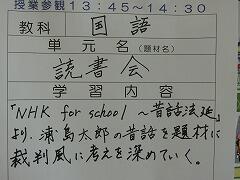 授業参観13:45～14:30
教科 国語
単元名(題材名)
読書会
学習内容
「NHK for school ～昔話法廷」
より、浦島太郎の昔話を題材に
裁判風に考えを深めていく。